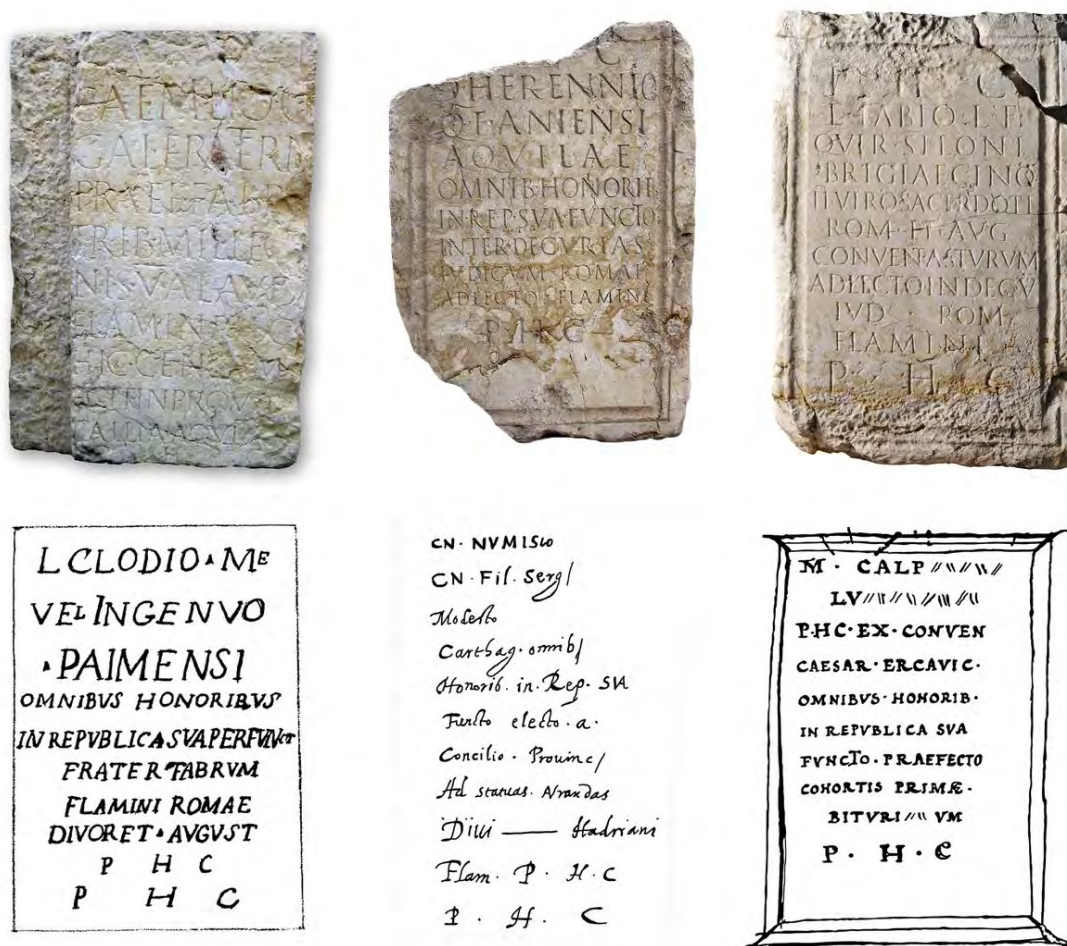 C·AEMILIO·C
GALER
PRAEF·FABR
TRIB·MIL·LE
NIS·
FLAMINI
H·C·
Q·HERENNIO
Q·F·ANIENSI
AQVILAE
OMNIB·HONORIB
IN REP·SVA FVNCTO
INTER DECVRIAS
IVDICVM ROMAE
ADLECTO FLAMINI
P·H·C
P H C
L·FABIO·L·F
QVIR·SILONI
BRIGIAECINO
II VIRO SACERDOTI
ROM·ET·AVG
CONVEN·ASTVRVM
ADLECTO IN DECV
IVD · ROM
FLAMINI
P · H · C
L CLODIO · ME
VEL INGENVO
· PAIMENSI
OMNIBVS HONORIBVS
IN REPVBLICA SVA
FRATER FABRVM
FLAMINI ROMAE
DIVORET · AVGVST
P H C
P H C
CN· NVMISIO
CN · Fil. Sergl
Modesto
Carthag. omnib/
Honorib. in. Rep. SVA
Functo electo. a.
Concilio. Provinc/
Ad statuas. Avrandas
Divi —— Hadriani
Flam. P. H. C
P . H . C
M · CALP
LV
P·HC·EX·CONVEN
CAESAR·ERCAVIC·
OMNIBVS·HONORIB·
IN REPVBLICA SVA
FVNCTO·PRAEFECTO
COHORTIS PRIMÆ·
BITVRI VM
P · H · C